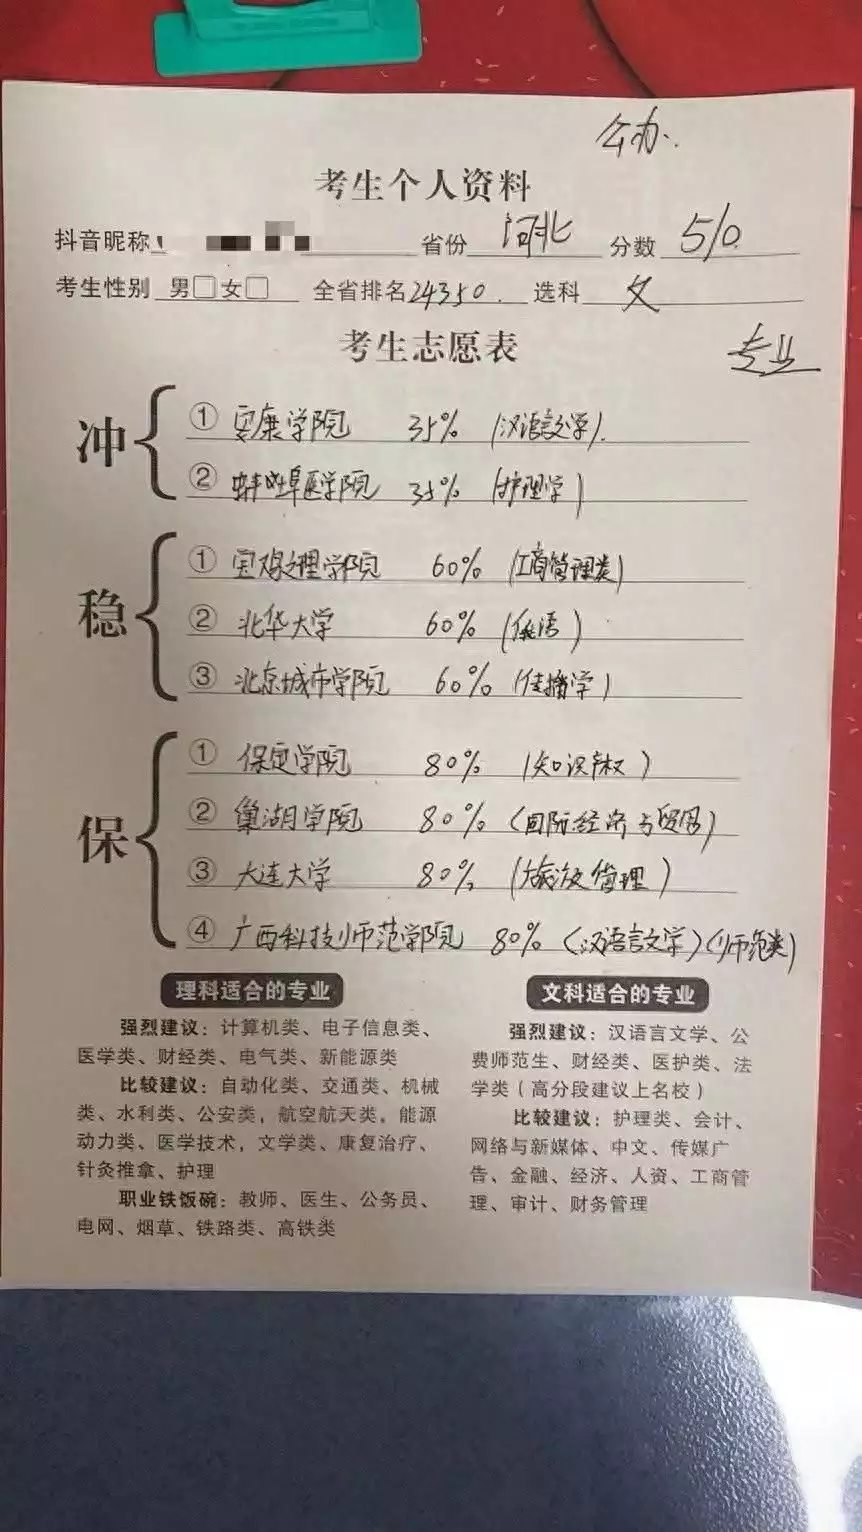 公办.
考生个人资料
抖音昵称 省份 河北 分数 510
考生性别 男□女□ 全省排名24350. 选科 文
考生志愿表
专业
冲
① 安康学院 35% (汉语言文学).
② 蚌埠医学院 35% (护理学)
稳
① 宝鸡文理学院 60% (工商管理类)
② 北华大学 60% (俄语)
③ 北京城市学院 60% (传播学)
保
① 保定学院 80% (知识产权)
② 巢湖学院 80% (国际经济与贸易)
③ 大连大学 80% (旅游管理)
④ 广西科技师范学院 80% (汉语言文学)(师范类)
理科适合的专业
强烈建议：计算机类、电子信息类、
医学类、财经类、电气类、新能源类
比较建议：自动化类、交通类、机械
类、水利类、公安类，航空航天类，能源
动力类、医学技术，文学类、康复治疗、
针灸推拿、护理
职业铁饭碗：教师、医生、公务员、
电网、烟草、铁路类、高铁类
文科适合的专业
强烈建议：汉语言文学、公
费师范生、财经类、医护类、法
学类（高分段建议上名校）
比较建议：护理类、会计、
网络与新媒体、中文、传媒广
告、金融、经济、人资、工商管
理、审计、财务管理